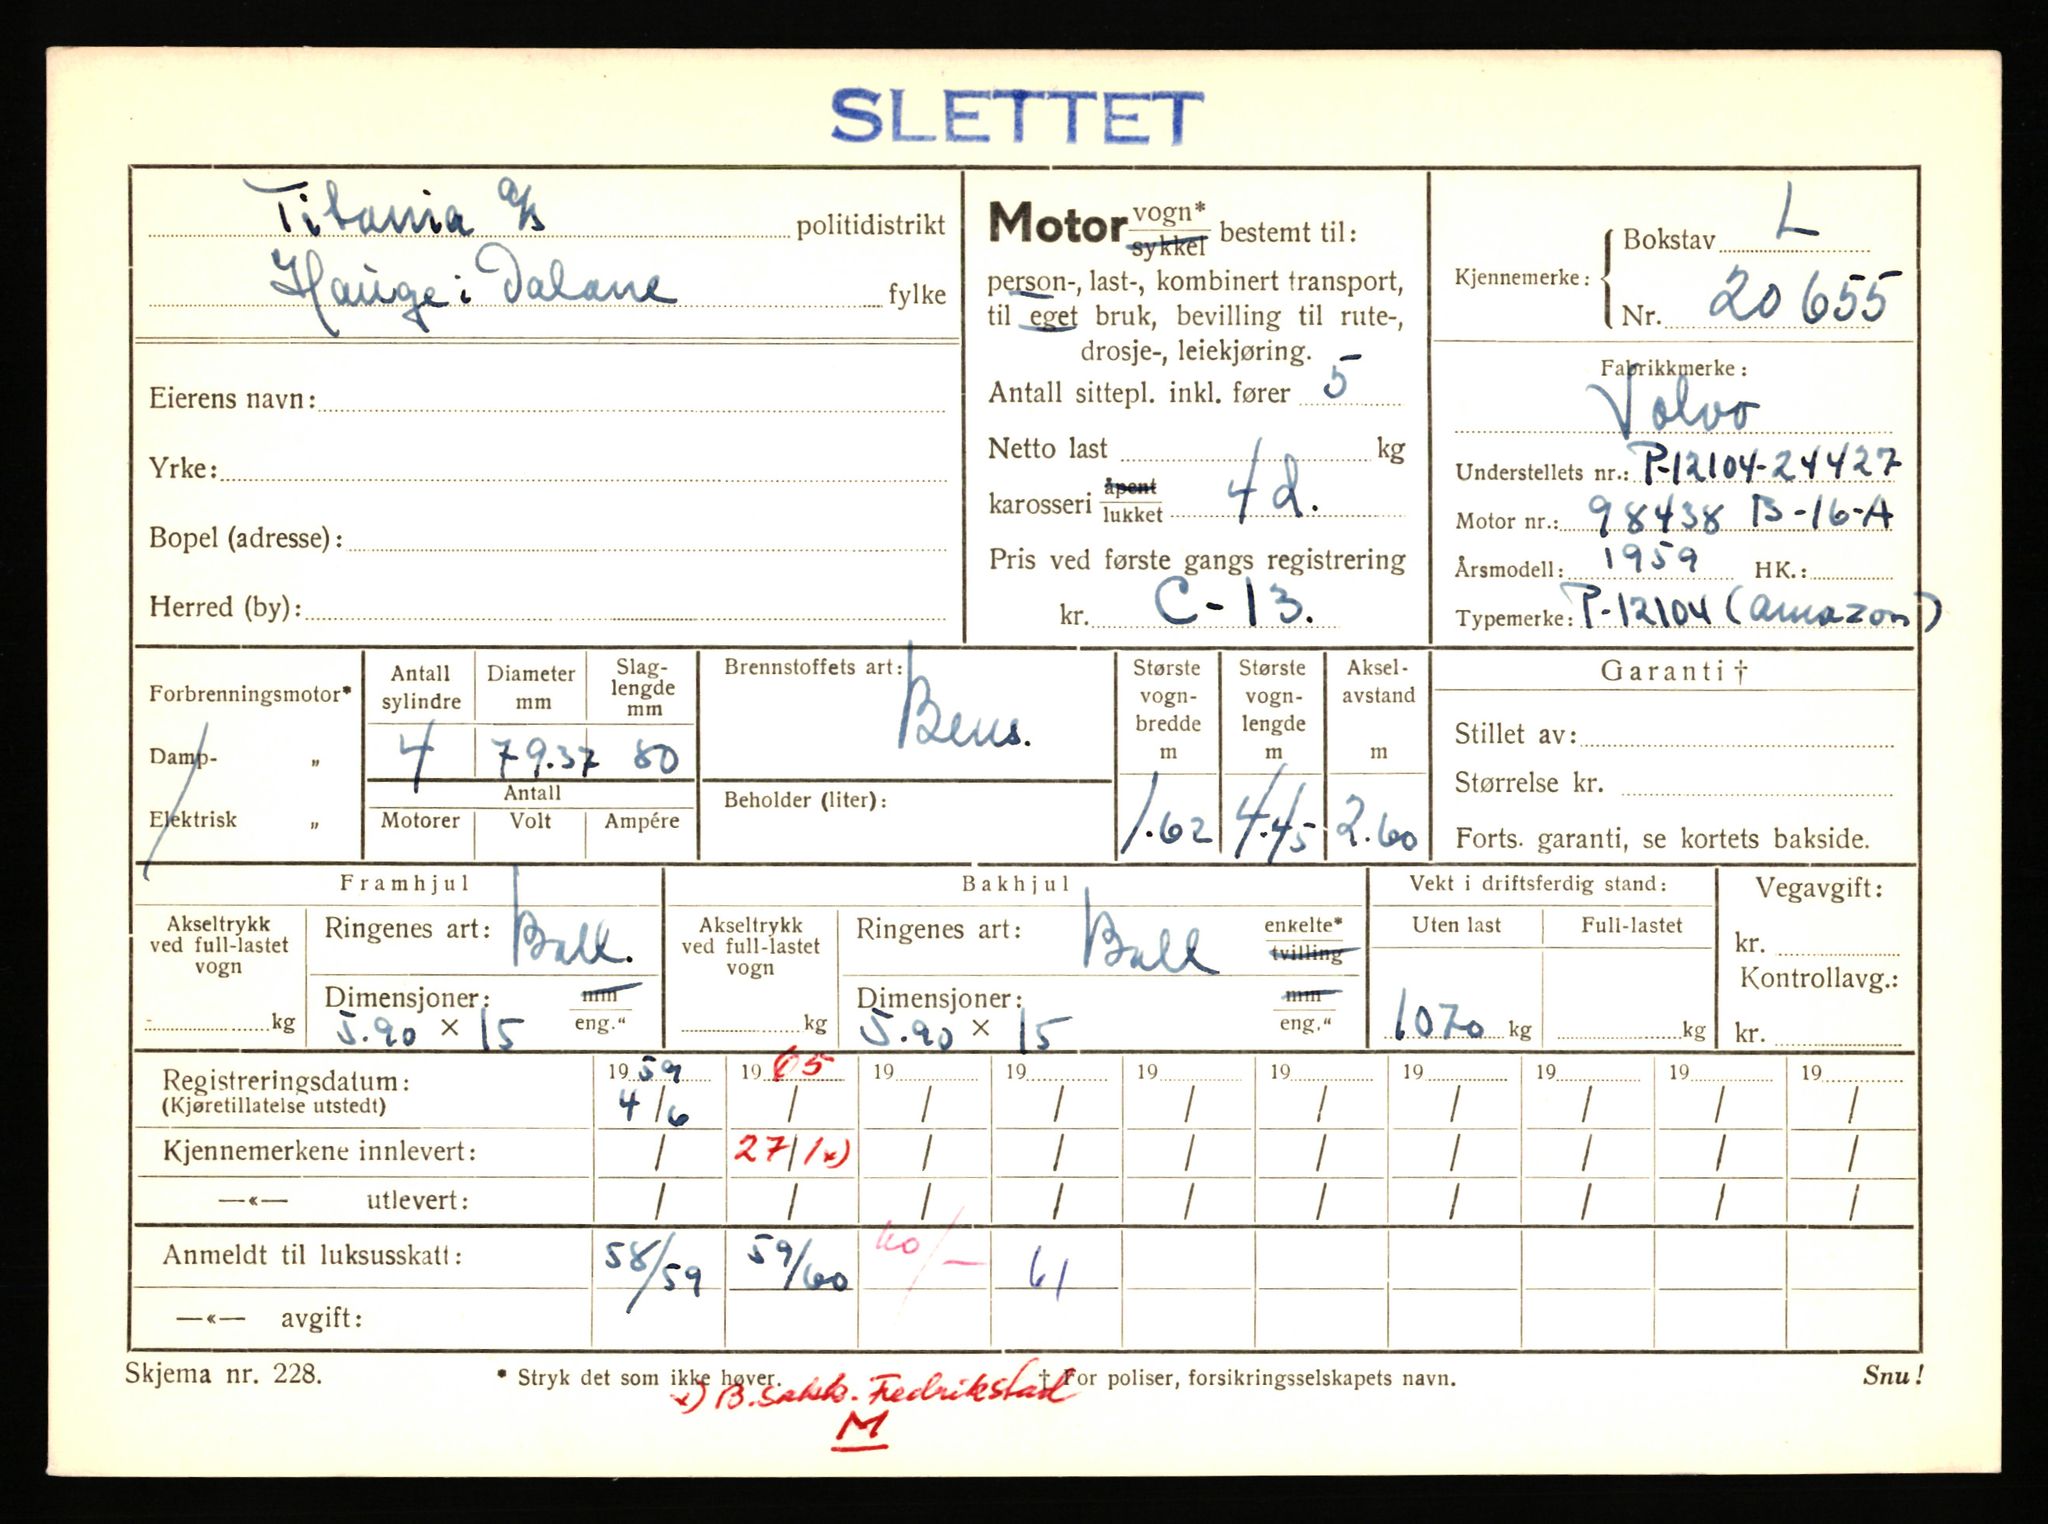 SLETTET
Titania a/s politidistrikt
Hauge i Dalane fylke
Eierens navn:
Yrke:
Bopel (adresse):
Herred (by):
Motor vogn* sykkel bestemt til:
person-, last-, kombinert transport,
til eget bruk, bevilling til rute-,
drosje-, leiekjøring.
Antall sittepl. inkl. fører 5
Netto last kg
karosseri åpent lukket 4 d.
Pris ved første gangs registrering
kr. C-13.
Kjennemerke: Bokstav L
Nr. 20655
Fabrikkmerke:
Volvo
Understellets nr.: P-12104-24427
Motor nr.: 98438 B-16-A
Årsmodell: 1959 HK.:
Typemerke: P-12104 (amazon)
Forbrenningsmotor*
Damp- „
Elektrisk „
Antall sylindre
4
Diameter mm
79.37
Slag-lengde mm
80
Antall
Motorer Volt Ampére
Brennstoffets art: Bens.
Beholder (liter):
Største vogn-bredde m
1.62
Største vogn-lengde m
4.45
Aksel-avstand m
2.60
Garanti †
Stillet av:
Størrelse kr.
Forts. garanti, se kortets bakside.
Framhjul
Akseltrykk ved full-lastet vogn
kg
Ringenes art: Ball.
Dimensjoner: mm eng."
5.90 × 15
Bakhjul
Akseltrykk ved full-lastet vogn
kg
Ringenes art: Ball enkelte* tvilling
Dimensjoner: mm eng."
5.90 × 15
Vekt i driftsferdig stand:
Uten last Full-lastet
1070 kg kg
Vegavgift:
kr.
Kontrollavg.:
kr.
Registreringsdatum: 1959 1965 19 19 19 19 19 19 19 19
(Kjøretillatelse utstedt) 4/6 / / / / / / / / /
Kjennemerkene innlevert: / 27/1 x) / / / / / / / /
—«— utlevert: / / / / / / / / / /
Anmeldt til luksusskatt: 58/59 59/60 60/– 61
—«— avgift:
Skjema nr. 228. * Stryk det som ikke høver. † For poliser, forsikringsselskapets navn. Snu!
x) B. Sakk. Fredrikstad
M